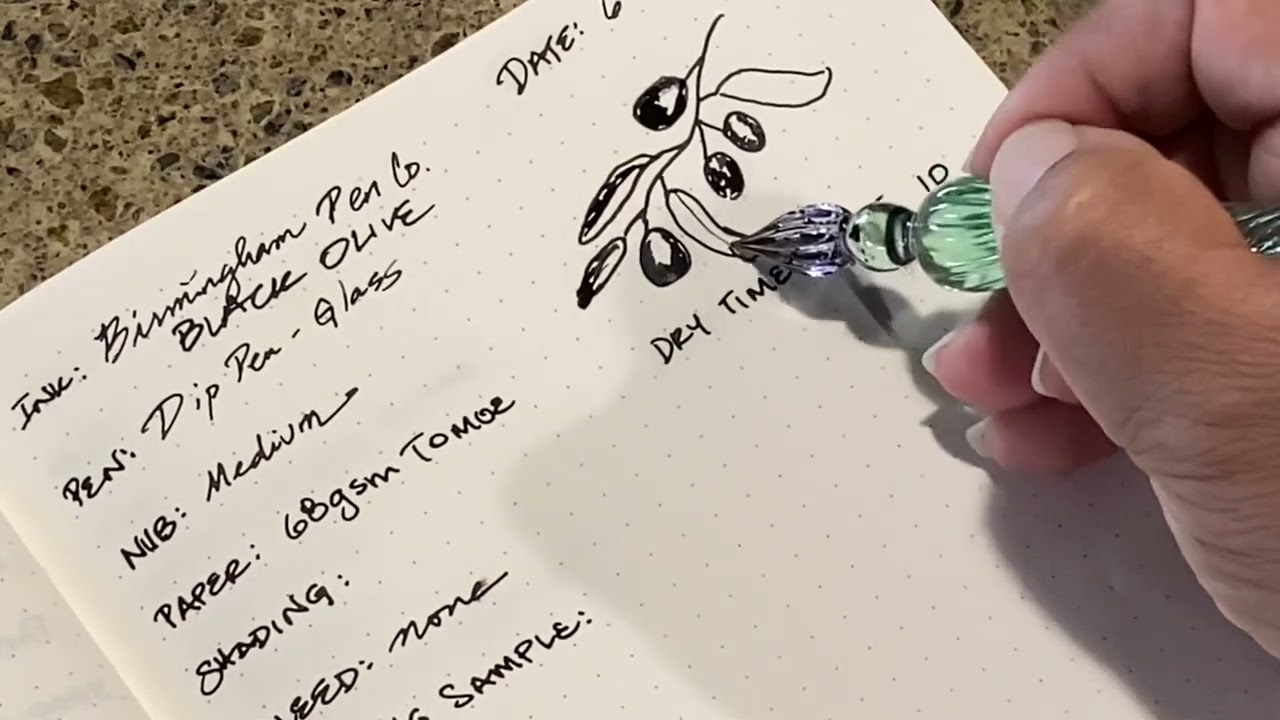 DATE: 6
INK: Birmingham Pen Co.
BLACK OLIVE
PEN: Dip Pen - Glass
NIB: Medium
PAPER: 68gsm TOMOE
SHADING:
EED: none
G SAMPLE:
DRY TIME 10